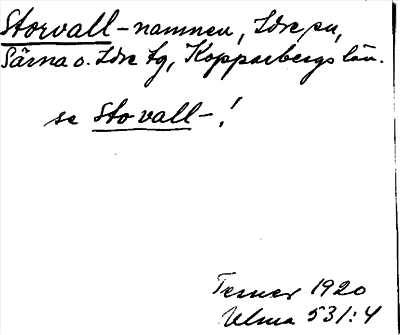 Storvall-namnen, Idre sn,
Särna o. Idre tg, Kopparbergs län.
se Stovall-!
Terner 1920
Ulma 531:4